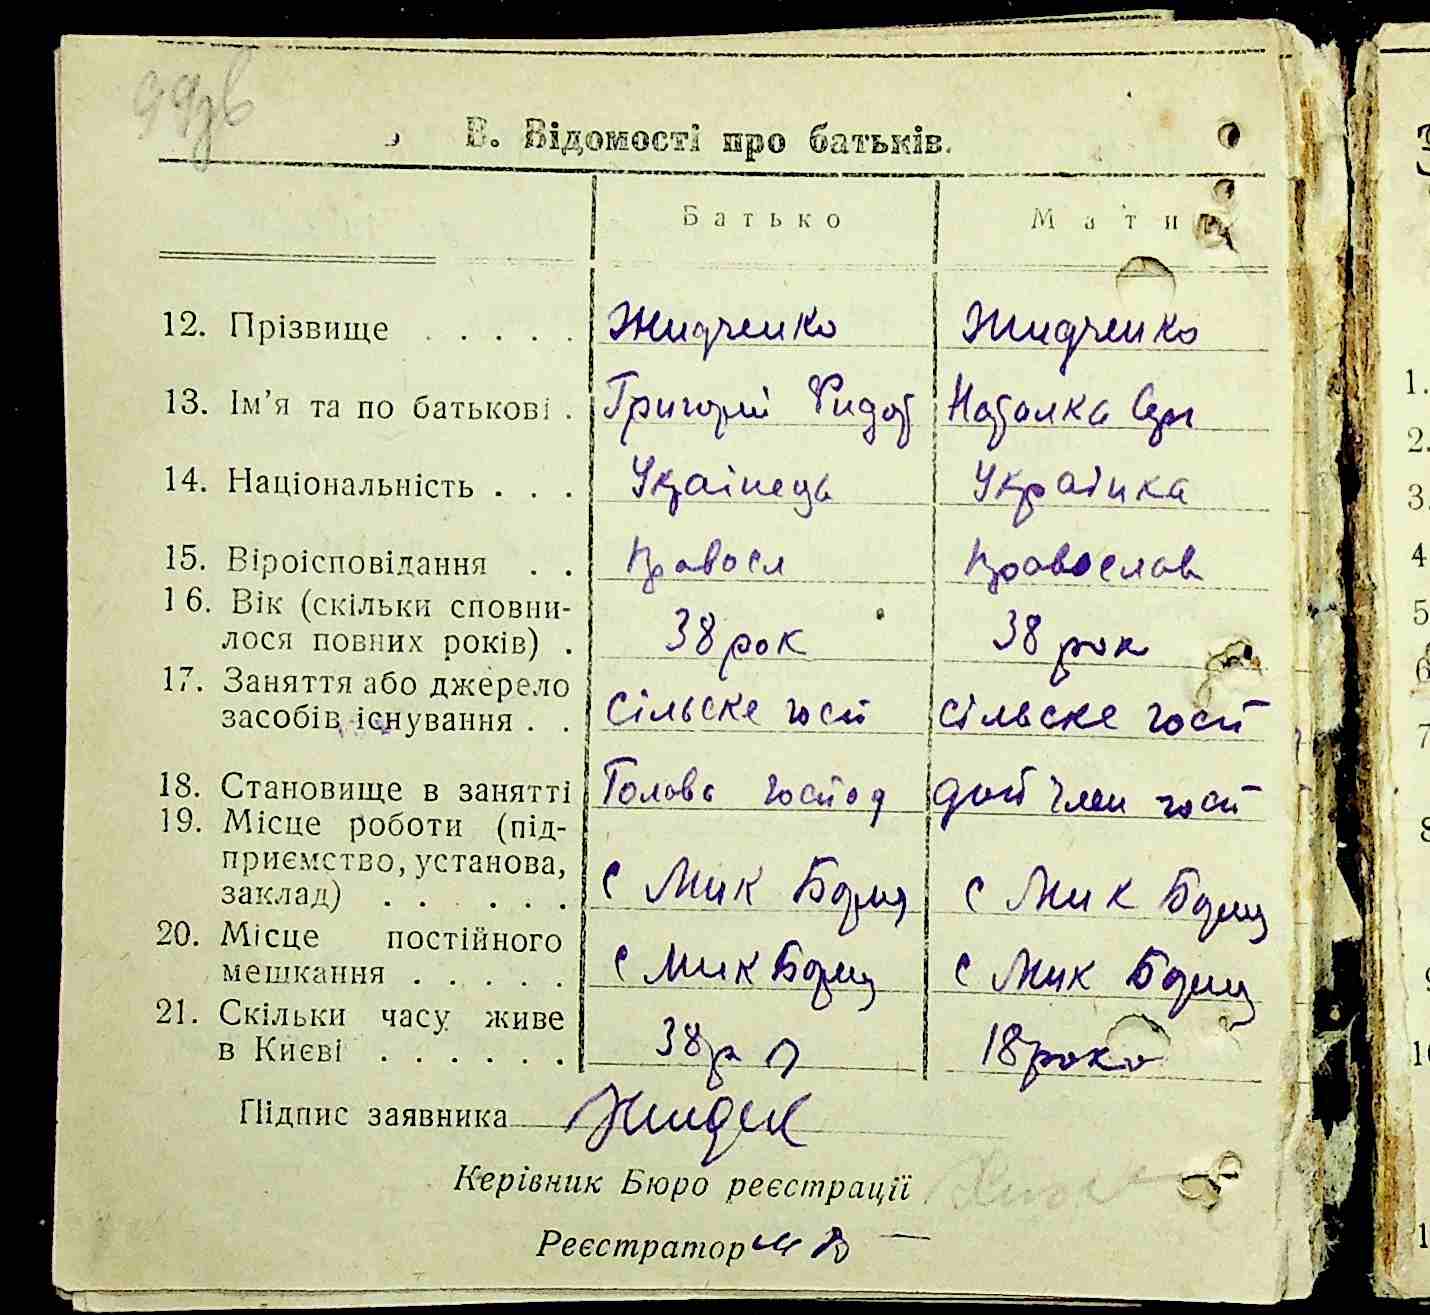 В. Відомості про батьків.
Батько Мати
12. Прізвище . . . . . Жидченко Жидченко
13. Ім'я та по батькові . Григорій Федот Наталка
14. Національність . . . Украінець Украінка
15. Віроісповідання . . Правосл Православ
16. Вік (скільки сповни-
лося повних років) . 38 рок 38 рок
17. Заняття або джерело
засобів існування . . сільске госп сільске госп
18. Становище в занятті Голова господ доп член госп
19. Місце роботи (під-
приємство, установа,
заклад) . . . . . . с Мик Борщ с Мик Борщ
20. Місце постійного
мешкання . . . . . с Мик Борщ с Мик Борщ
21. Скільки часу живе
в Києві . . . . . . 38 р 18 рокв
Підпис заявника
Керівник Бюро реєстрації
Реєстратор